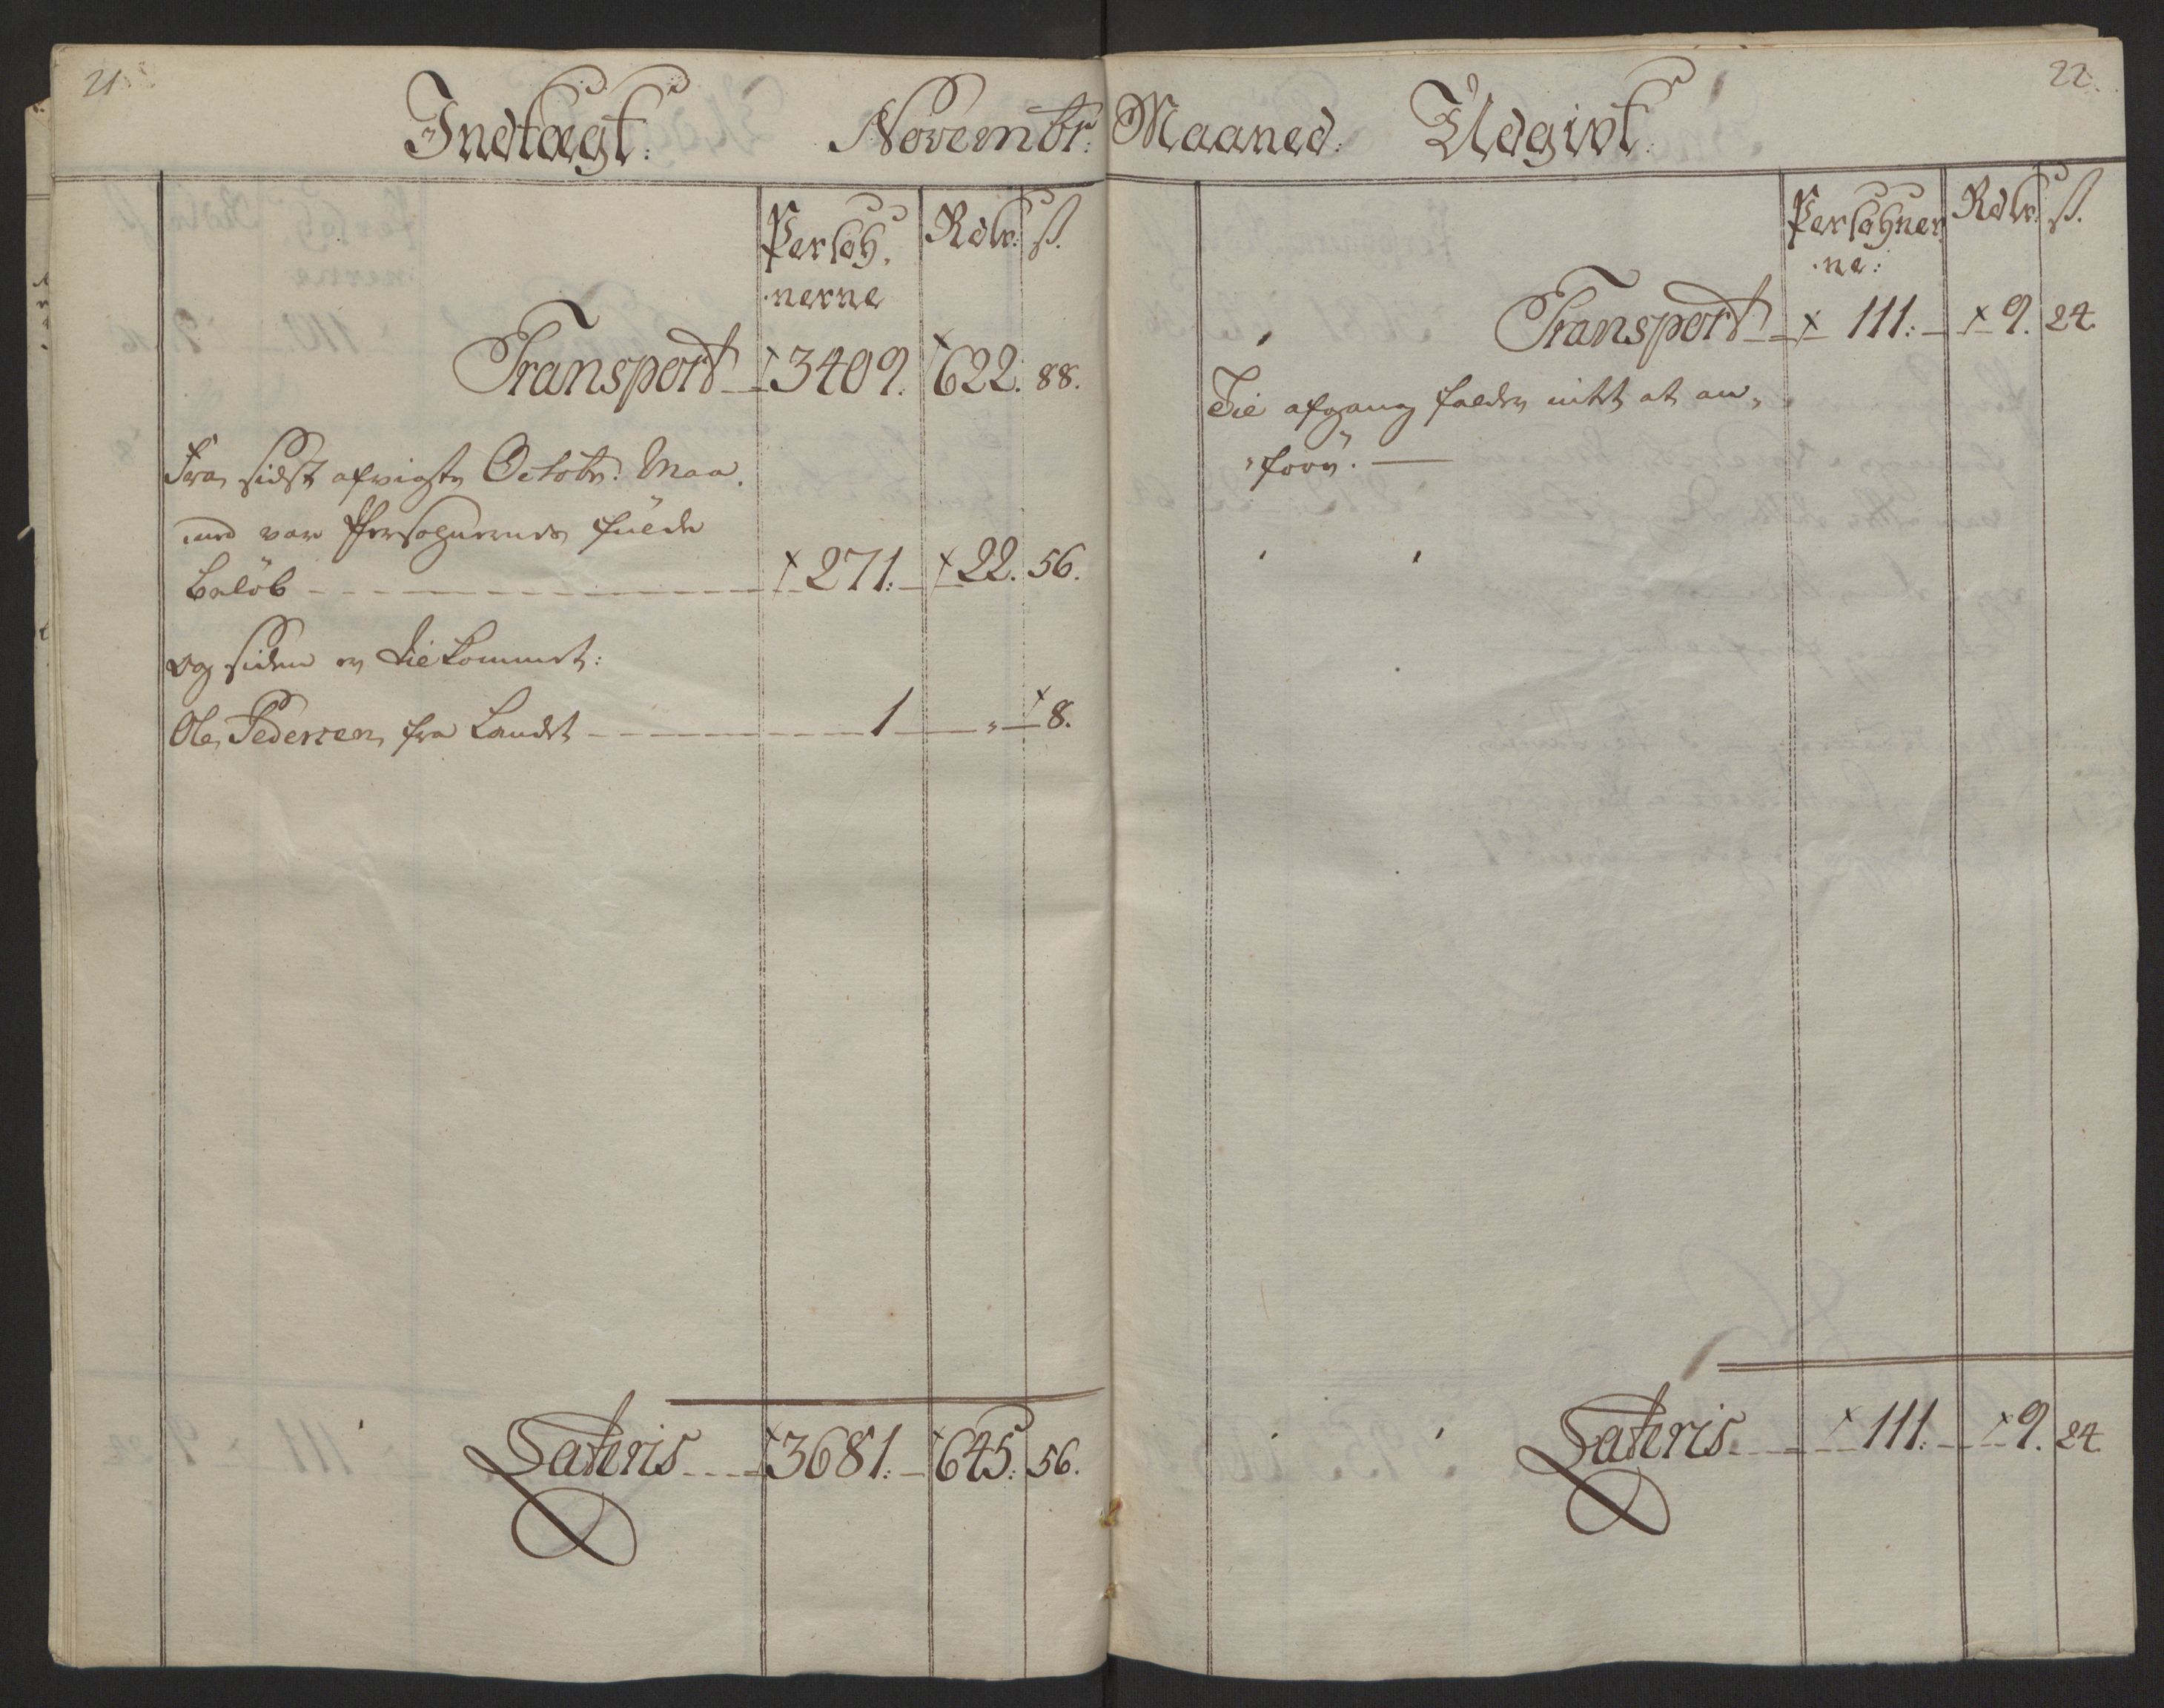 21
Indtægt. Novembr:
Persoh, Rdlr. ß.
nerne
Transport 3409. 622. 88.
Fra sidst afvigte Octobr. Maa,
ned var Persohnernes fulde
beløb 271. 22. 56.
og siden er tilkommet:
Ole Pedersen fra Landet 1 " 8.
Lateris 3681. 645. 56.
22.
Maaned. Udgivt.
Persohner Rdlr. ß.
ne:
Transport 111. 9. 24.
Til afgang falder intet at an,
føre.
Lateris 111. 9. 24.